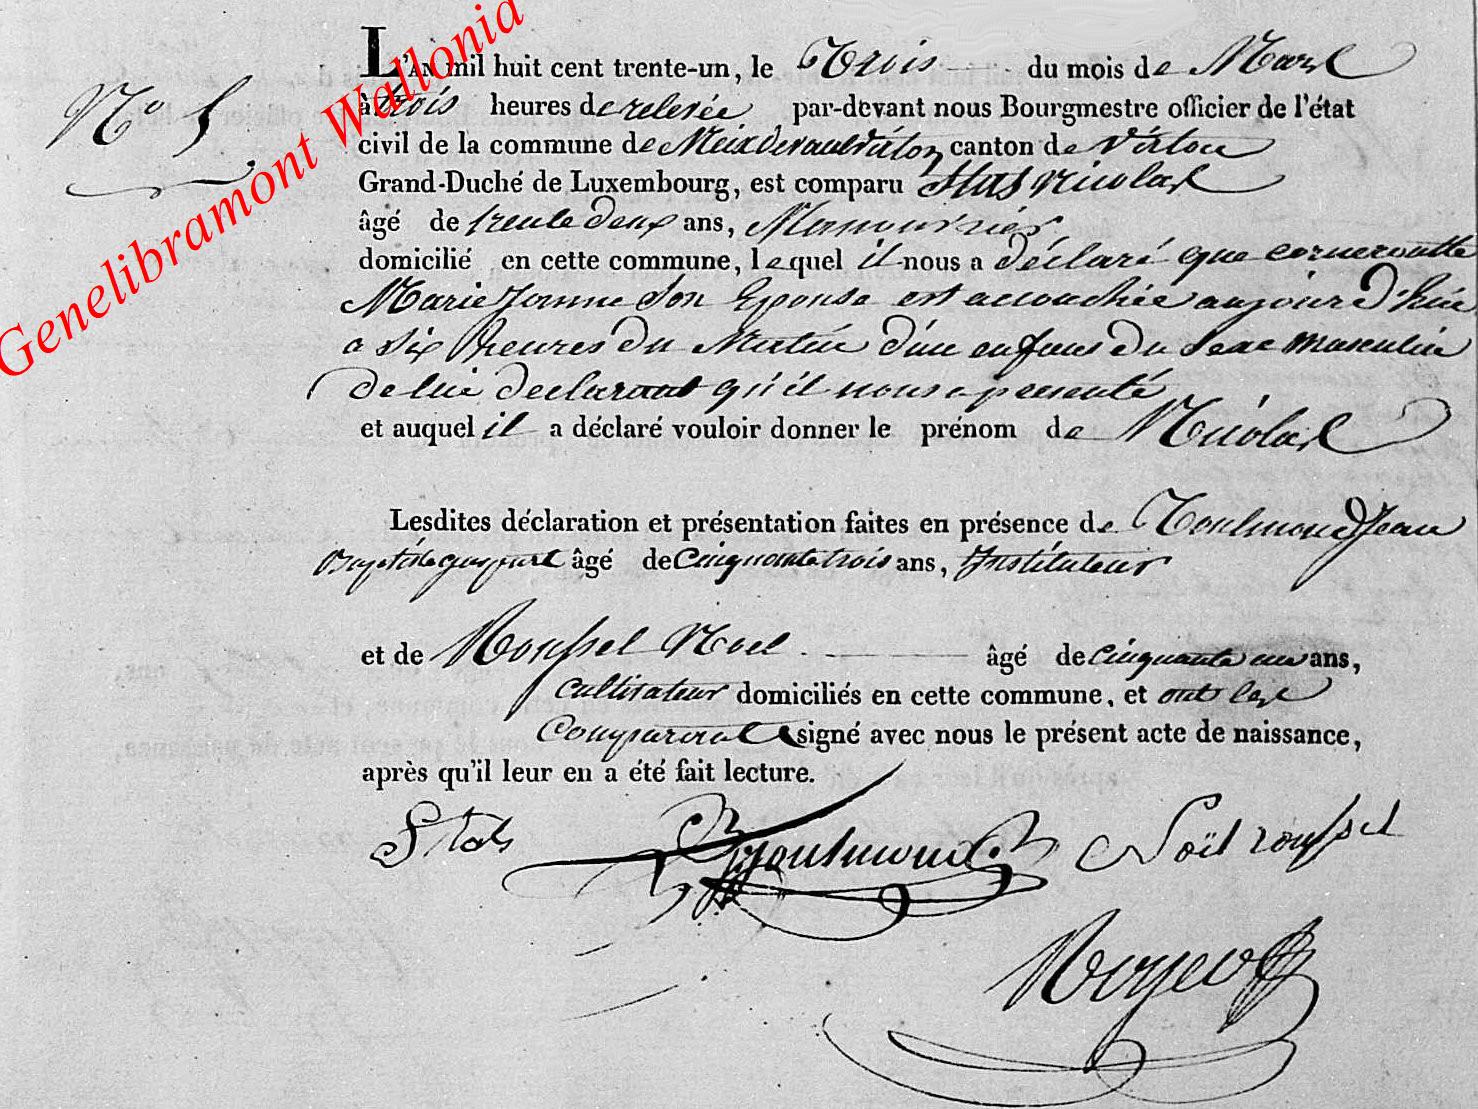 Genelibramont Wallonia
N° 5
L'AN mil huit cent trente-un, le Trois du mois de Mars
à trois heures de relevée par-devant nous Bourgmestre officier de l'état
civil de la commune de Meix devant Virton canton de Virton
Grand-Duché de Luxembourg, est comparu Stas Nicolas
âgé de trente deux ans, Manouvrier
domicilié en cette commune, lequel il nous a déclaré que
Marie Jeanne Son Epouse est accouchée aujourd'hui
a Six heures du Matin d'un enfant du Sexe masculin
de lui declarant qu'il nous a presenté
et auquel il a déclaré vouloir donner le prénom de Nicolas
Lesdites déclaration et présentation faites en présence de Toulmond Jean
Baptiste âgé de Cinquante trois ans, Instituteur
et de Roussel Noel âgé de Cinquante un ans,
Cultivateur domiciliés en cette commune, et ont les
Comparant signé avec nous le présent acte de naissance,
après qu'il leur en a été fait lecture.
Stas Toulmond Noël roussel